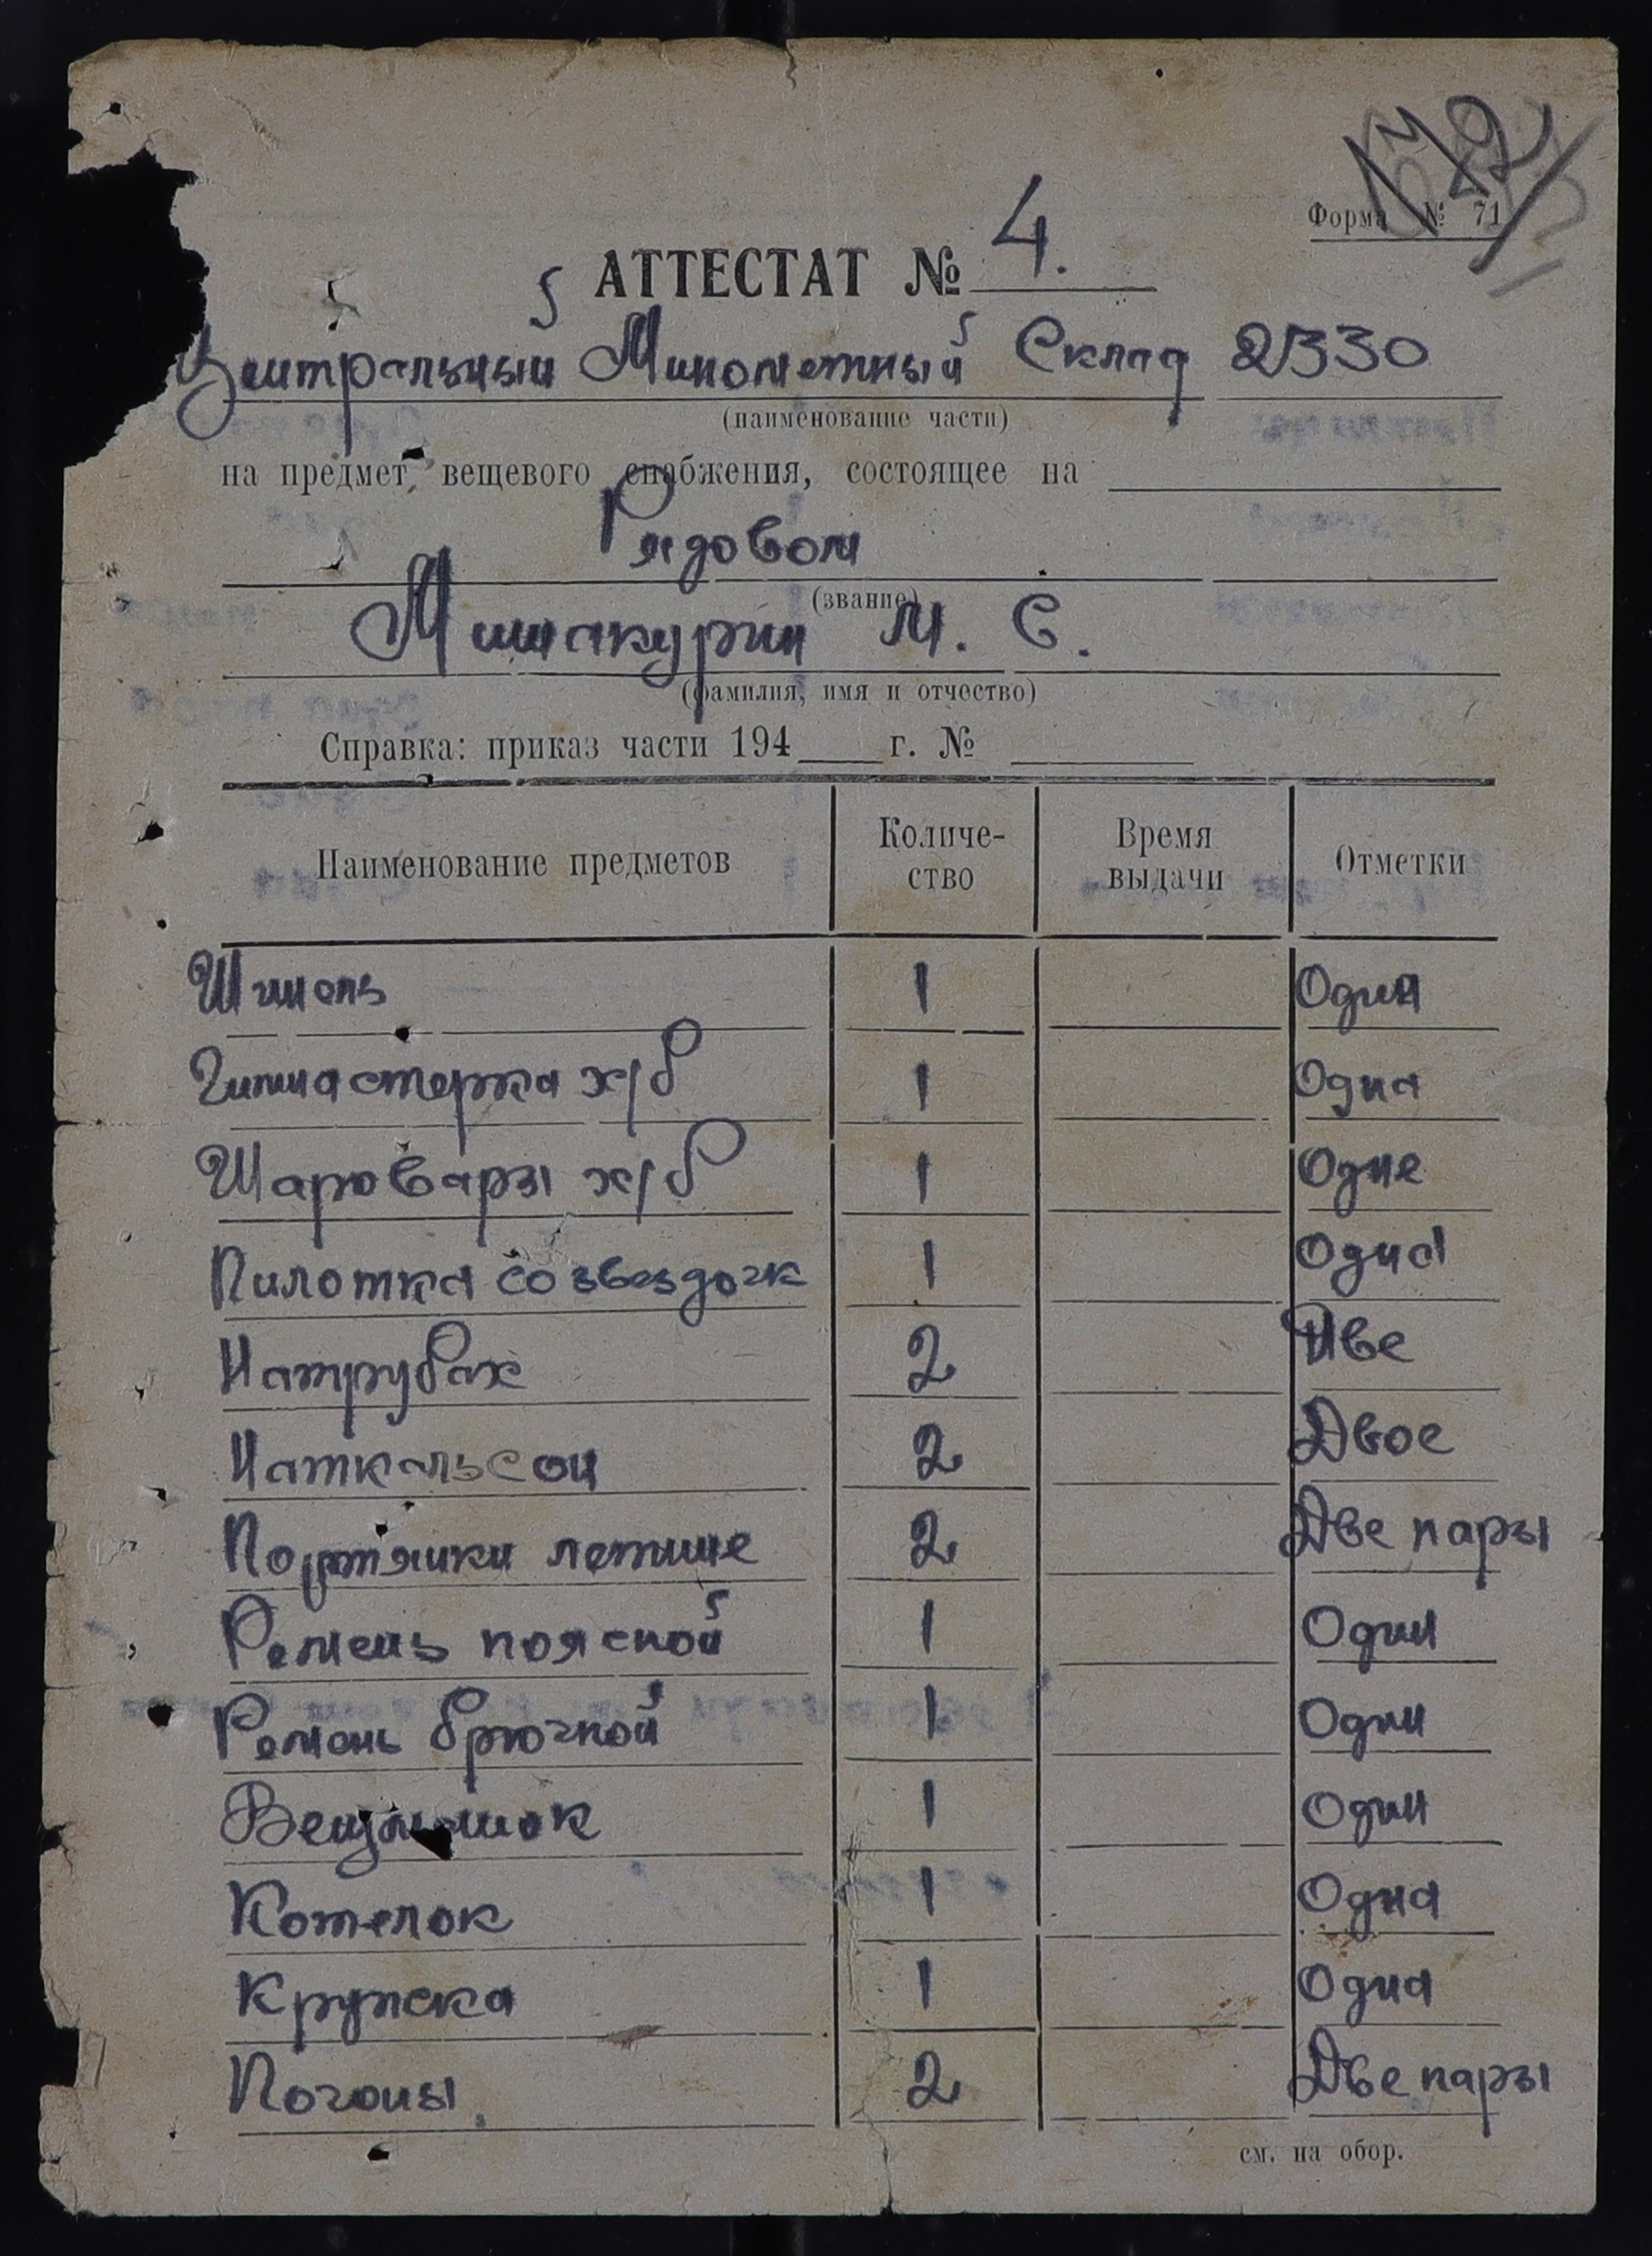 Форма № 71
АТТЕСТАТ № 4.
Центральный Минометный Склад 2330
(наименование части)
на предмет вещевого снабжения, состоящее на
Рядовом
(звание)
Мишакурин М. С.
(фамилия, имя и отчество)
Справка: приказ части 194 г. №
Наименование предметов Количе-ство Время выдачи Отметки
Шинель 1 Один
Гимнастерка х/б 1 Одна
Шаровары х/б 1 Одне
Пилотка со звездочк 1 Одна
Натрубах 2 Две
Наткальсон 2 Двое
Портянки летние 2 Две пары
Ремень поясной 1 Один
Ремень брючной 1 Один
Вещмешок 1 Один
Котелок 1 Одна
Кружска 1 Одна
Погоны 2 Две пары
см. на обор.